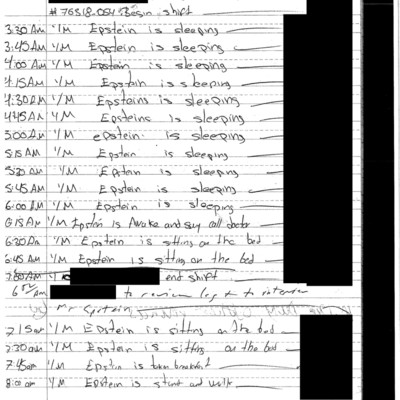 #76318-054 Begin shift
3:30 AM I/M Epstein is sleeping
3:45 AM I/M Epstein is sleeping
4:00 AM I/M Epstein is sleeping
4:15 AM I/M Epstein is sleeping
4:30 AM I/M Epsteins is sleeping
4:45 AM I/M Epsteins is sleeping
5:00 AM I/M epstein is sleeping
5:15 AM I/M Epstein is sleeping
5:30 AM I/M Eptein is sleeping
5:45 AM I/M Epstein is sleeping
6:00 AM I/M Epstein is sleeping
6:15 AM I/M Epstein is Awake and say call doctor
6:30 AM I/M Epstein is sitting on the bed
6:45 AM I/M Epstein is sitting on the bed
7:00 AM end shift
6 AM to review log + to interview
Mr Epstein
7:15 am I/M Epstein is sitting on the bed
7:30 am I/M Epstein is sitting on the bed
7:45 am I/M Epstein is breakfast
8:00 am I/M Epstein is and walk